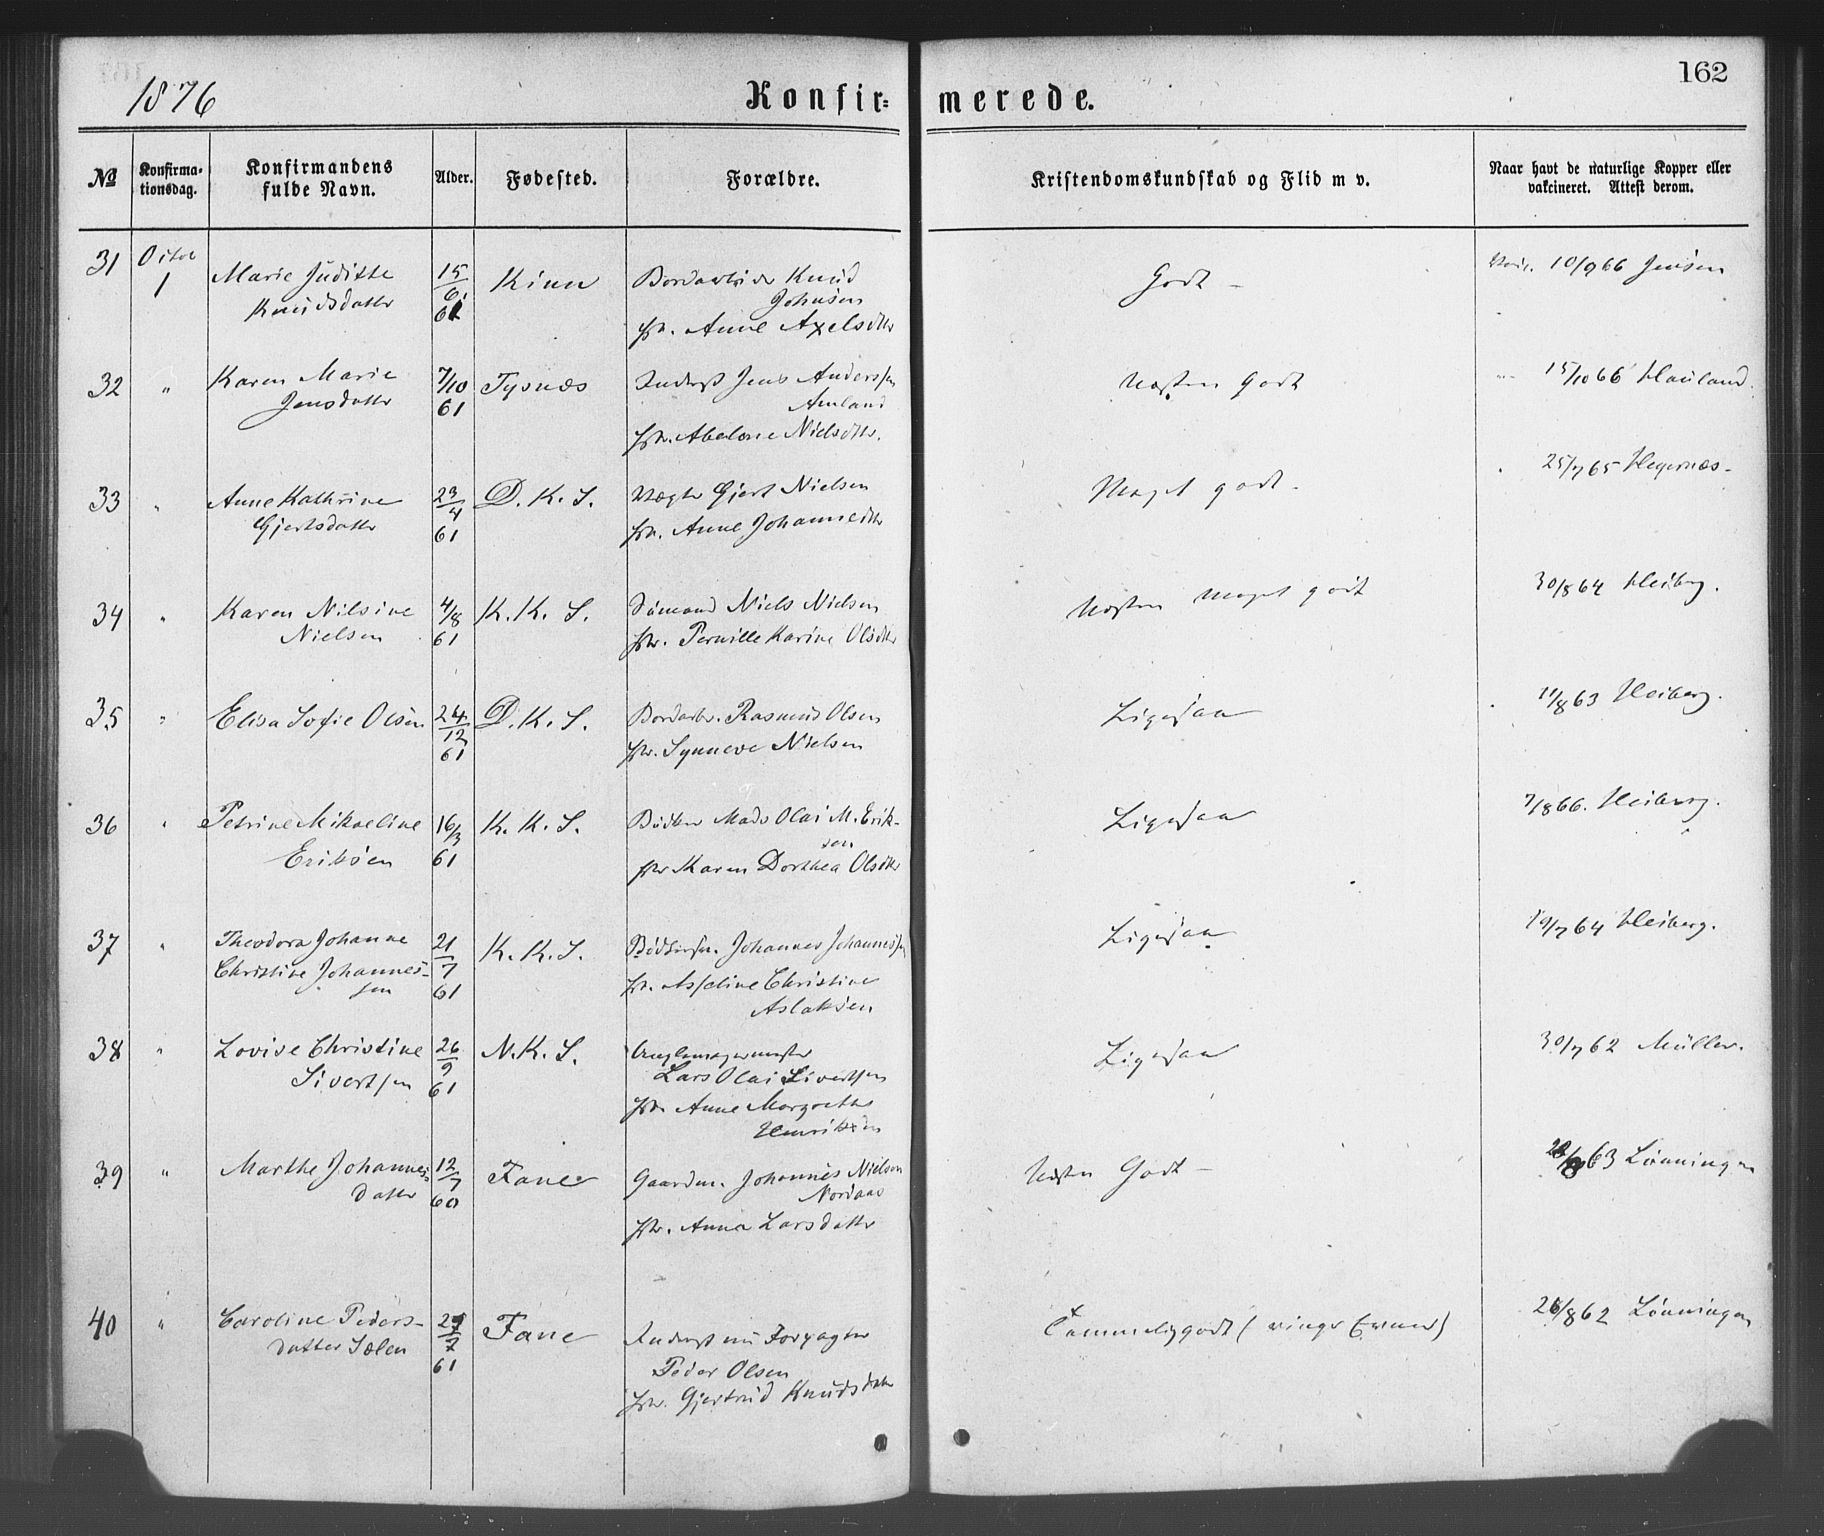 1876
Konfir= merede.
162
No
Konfirma-
tionsdag.
Konfirmandens
fulde Navn.
Alder.
Fødested.
Forældre.
Kristendomskundskab og Flid m v.
Naar havt de naturlige Kopper eller
vakcineret. Attest derom.
31 Octob
1
Marie Juditte
Knudsdatter
15/6
61
Kinn
Bordarbeider Knud
Johnsen
Hstr. Anne Axelsdtr
Godt –
Vacc. 10/9 66 Jensen
32 " Karen Marie
Jensdatter
7/10
61
Tysnæs
Inderst Jens Anderssen
Amland
Hstr. Abelone Nielsdtr.
Næsten Godt
15/10 66 Hauland.
33 " Anne Kathrine
Gjertsdatter
23/4
61
D. K. S.
Vægter Gjert Nielsen
Hstr. Anne Johannesdtr
Meget godt.
25/7 65 Hegernæs-
34 " Karen Nilsine
Nielsen
4/8
61
K. K. S.
Sømand Niels Nielsen
Hstr. Pernille Karine Olsdtr
Næsten meget godt
30/8 64 Heiberg.
35 " Elisa Sofie Olsen
24/12
61
D. K. S.
Bordarb. Rasmus Olsen
Hstr. Synneve Nielsen
Ligesaa
11/8 63 Heiberg.
36 " Petrine Mikaeline
Eriksen
16/3
61
K. K. S.
Bødker Mads Olai M. Erik-
sen
Hstr Karen Dorthea Olsdtr
Ligesaa
7/8 66. Heiberg.
37 " Theodora Johanne
Christine Johannes-
sen
21/7
61
K. K. S.
Bødkersv. Johannes Johannessen
Hstr. Asseline Christine
Aslaksen
Ligesaa
19/7 64 Heiberg.
38 " Lovise Christine
Sivertsen
26/9
61
N. K. S.
Lars Olai Sivertsen
Hstr. Anne Margrethe
Henriksen
Ligesaa
30/7 62 Müller.
39 " Marthe Johannes-
datter
12/7
60
Fane
Gaardm. Johannes Nielsen
Nordaas
Hstr. Anna Larsdatter
Næsten Godt –
63 Lønningen
40 " Caroline Peders-
datter Sælen
7
61
Fane
Inderst nu Forpagter
Peder Olsen
Hstr. Gjertrud Knudsdatter
Temmelig godt (ringe Evner)
26/8 62 Lønningen